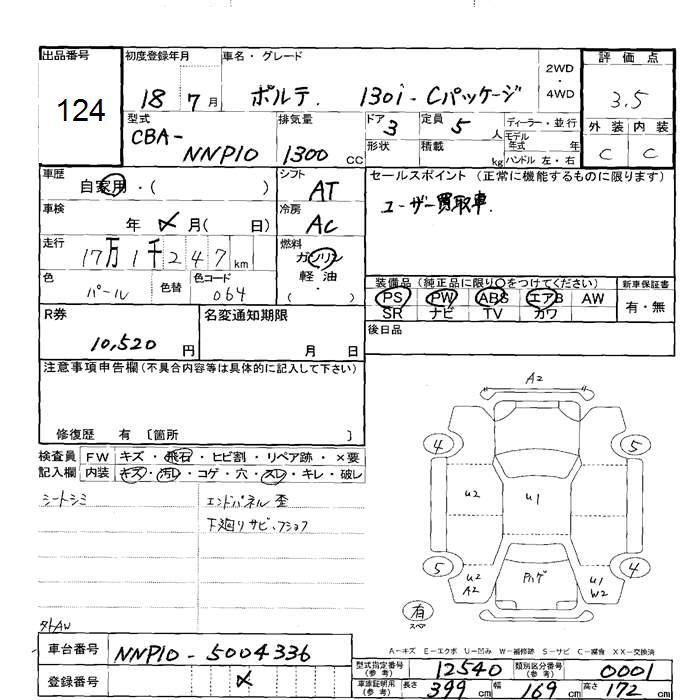 出品番号
124
初度登録年月
18 7月
車名・グレード
ポルテ. 130i・Cパッケージ
2WD
・
4WD
評価点
3.5
外装 内装
C C
型式
CBA-
NNP10
排気量
1300 CC
ドア
3
定員 5 人
ディーラー・並行
モデル
年式 年
形状
積載 kg
ハンドル 左・右
車歴
自家用・( )
シフト
AT
セールスポイント (正常に機能するものに限ります)
ユーザー買取車.
車検
年 メ 月( 日)
冷房
AC
走行
17万1千247km
燃料
ガソリン
軽油
・
( )
色
パール
色替
色コード
064
装備品(純正品に限り○をつけてください)
PS PW ABS エアB AW
SR ナビ TV カワ
新車保証書
有・無
R券
10,520 円
名変通知期限
月 日
後日品
注意事項申告欄(不具合内容等は具体的に記入して下さい)
修復歴 有 〔箇所 〕
検査員
記入欄
FW キズ・飛石・ヒビ割・リペア跡・×要
内装 キズ・汚レ・コゲ・穴・スレ・キレ・破レ
シートシミ
エンドパネル歪
下廻りサビ、フショク
A2
4 5
U2 U1
5 4
U2
A2
U1
W2
有
スペア
タトAW
A－キズ E－エクボ U－凹み W－補修跡 S－サビ C－腐食 XX－交換済
車台番号
NNP10-5004336
登録番号
メ
型式指定番号
(参考)
12540
類別区分番号
(参考)
0001
車庫証明用
(参考)
長さ 399 cm 幅 169 cm 高さ 172 cm